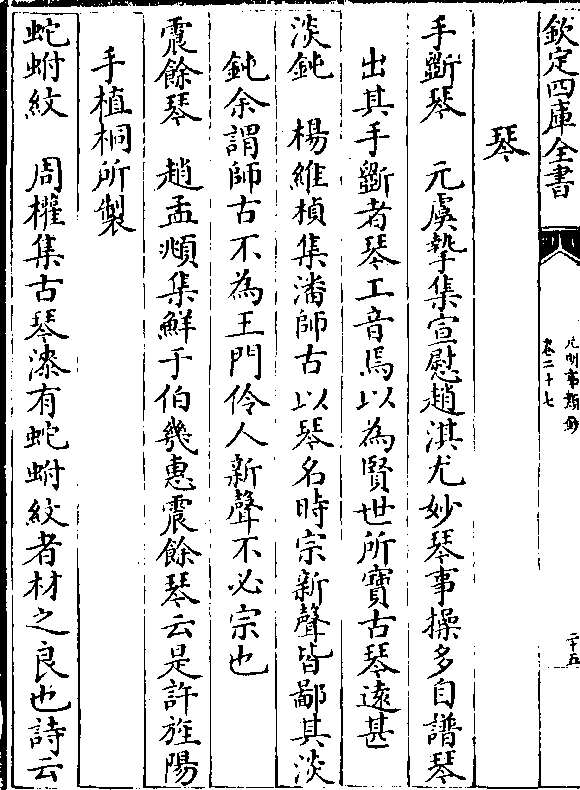 欽定四庫全書
元明事類鈔
卷二十七
二十五
琴
手斵琴　元虞摯集宣慰趙淇尤妙琴事操多自譜琴
出其手斵者琴工音焉以為賢世所寶古琴遠甚
淡鈍　楊維楨集潘師古以琴名時宗新聲皆鄙其淡
鈍余謂師古不為王門伶人新聲不必宗也
震餘琴　趙孟頫集鮮于伯幾惠震餘琴云是許旌陽
手植桐所製
蛇蚹紋　周權集古琴漆有蛇蚹紋者材之良也詩云